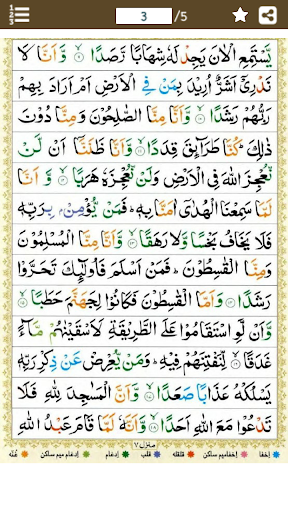 3 /5
يَّسْتَمِعِ الْاٰنَ يَجِدْ لَهٗ شِهَابًا رَّصَدًا ۙ﴿۹﴾ وَّ اَنَّا لَا
نَدْرِیْۤ اَشَرٌّ اُرِیْدَ بِمَنْ فِی الْاَرْضِ اَمْ اَرَادَ بِهِمْ
رَبُّهُمْ رَشَدًا ۙ﴿۱۰﴾ وَّ اَنَّا مِنَّا الصّٰلِحُوْنَ وَ مِنَّا دُوْنَ
ذٰلِكَ ؕ كُنَّا طَرَآئِقَ قِدَدًا ۙ﴿۱۱﴾ وَّ اَنَّا ظَنَنَّاۤ اَنْ لَّنْ
نُّعْجِزَ اللّٰهَ فِی الْاَرْضِ وَ لَنْ نُّعْجِزَهٗ هَرَبًا ۙ﴿۱۲﴾ وَّ اَنَّا
لَمَّا سَمِعْنَا الْهُدٰۤی اٰمَنَّا بِهٖ ؕ فَمَنْ یُّؤْمِنْۢ بِرَبِّهٖ
فَلَا یَخَافُ بَخْسًا وَّ لَا رَهَقًا ۙ﴿۱۳﴾ وَّ اَنَّا مِنَّا الْمُسْلِمُوْنَ
وَ مِنَّا الْقٰسِطُوْنَ ؕ فَمَنْ اَسْلَمَ فَاُولٰٓئِكَ تَحَرَّوْا
رَشَدًا ﴿۱۴﴾ وَ اَمَّا الْقٰسِطُوْنَ فَكَانُوْا لِجَهَنَّمَ حَطَبًا ۙ﴿۱۵﴾
وَّ اَنْ لَّوِ اسْتَقَامُوْا عَلَی الطَّرِیْقَةِ لَاَسْقَیْنٰهُمْ مَّآءً
غَدَقًا ۙ﴿۱۶﴾ لِّنَفْتِنَهُمْ فِیْهِ ؕ وَ مَنْ یُّعْرِضْ عَنْ ذِكْرِ رَبِّهٖ
یَسْلُكْهُ عَذَابًا صَعَدًا ۙ﴿۱۷﴾ وَّ اَنَّ الْمَسٰجِدَ لِلّٰهِ فَلَا
تَدْعُوْا مَعَ اللّٰهِ اَحَدًا ۙ﴿۱۸﴾ وَّ اَنَّهٗ لَمَّا قَامَ عَبْدُ اللّٰهِ
منزل ۷
اخفا اخفا میم ساکن قلقله قلب ادغام ادغام میم ساکن غنّه